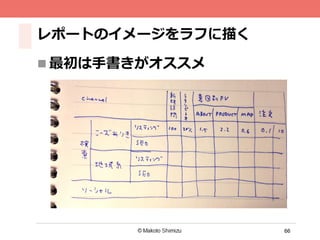 レポートのイメージをラフに描く
■最初は手書きがオススメ
channel
重要ページPV
ABOUT PRODUCT MAP 注文
検索 ニーズあり リスティング 100 20% 1.5 2.2 0.6 0.1 10
SEO
地域系 リスティング
SEO
ソーシャル
© Makoto Shimizu
66